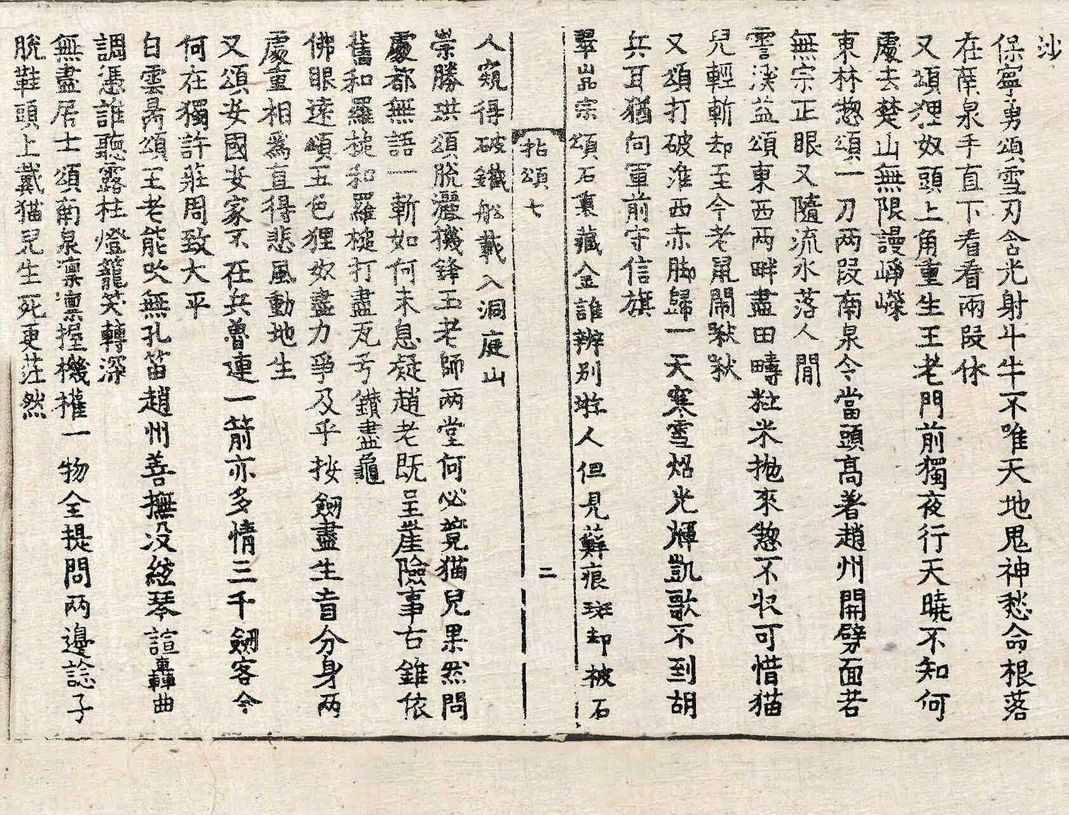 沙
保寧勇頌雪刃含光射斗牛不唯天地鬼神愁命根落
在南泉手直下看看兩段休
又頌狸奴頭上角重生王老門前獨夜行天曉不知何
處去楚山無限謾崢嶸
東林惣頌一刀兩段南泉令當頭高著趙州開劈面若
無宗正眼又隨流水落人間
雪溪益頌東西兩畔盡田疇粒米抛來惣不收可惜猫
兒輕斬却至今老鼠鬧啾啾
又頌打破淮西赤脚歸一天寒雪焰光輝凱歌不到胡
兵耳猶向軍前守信旗
翠嵓宗頌石裏藏金誰辨別遊人但見蘚痕斑却被石
拈頌七 二
人窺得破鐵船載入洞庭山
崇勝珙頌脫灑機鋒王老師兩堂何必競猫兒果然問
處都無語一斬如何未息疑趙老既呈崖險事古錐依
舊和羅槌和羅槌打盡瓦兮鑚盡龜
佛眼遠頌五色狸奴盡力爭及乎按劒盡生盲分身兩
處重相爲直得悲風動地生
又頌安國安家不在兵魯連一箭亦多情三千劒客今
何在獨許莊周致大平
白雲昺頌王老能吹無孔笛趙州善撫没絃琴諠轟曲
調憑誰聽露柱燈籠笑轉深
無盡居士頌南泉凛凛握機權一物全提問兩邊諗子
脫鞋頭上戴猫兒生死更茫然